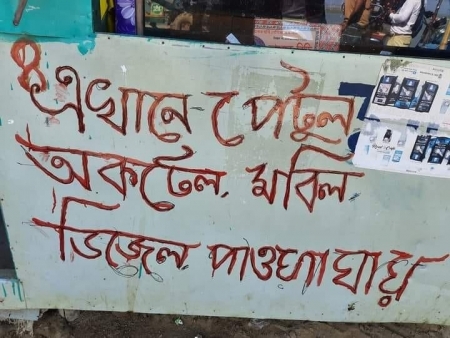 এখানে পেটুল
অকটেল. মবিল
ডিজেল. পাওয়া যায়